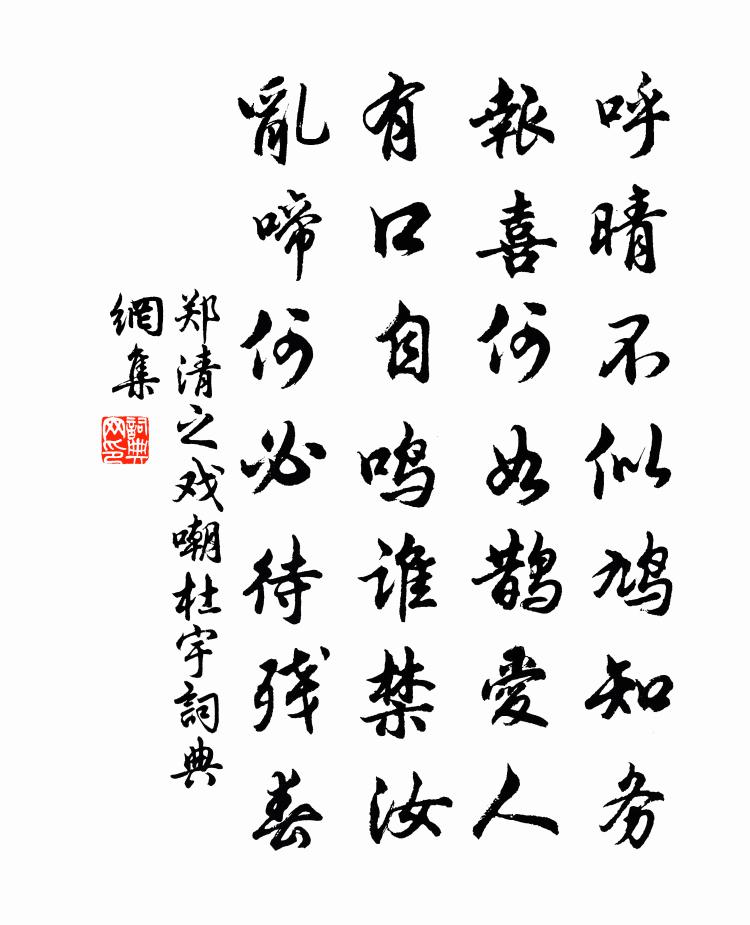 呼晴不似鸠知务
報喜何如鹊愛人
有口自鸣谁禁汝
亂啼何必待残春
郑清之戏嘲杜宇詞典
網集
詞典
网印